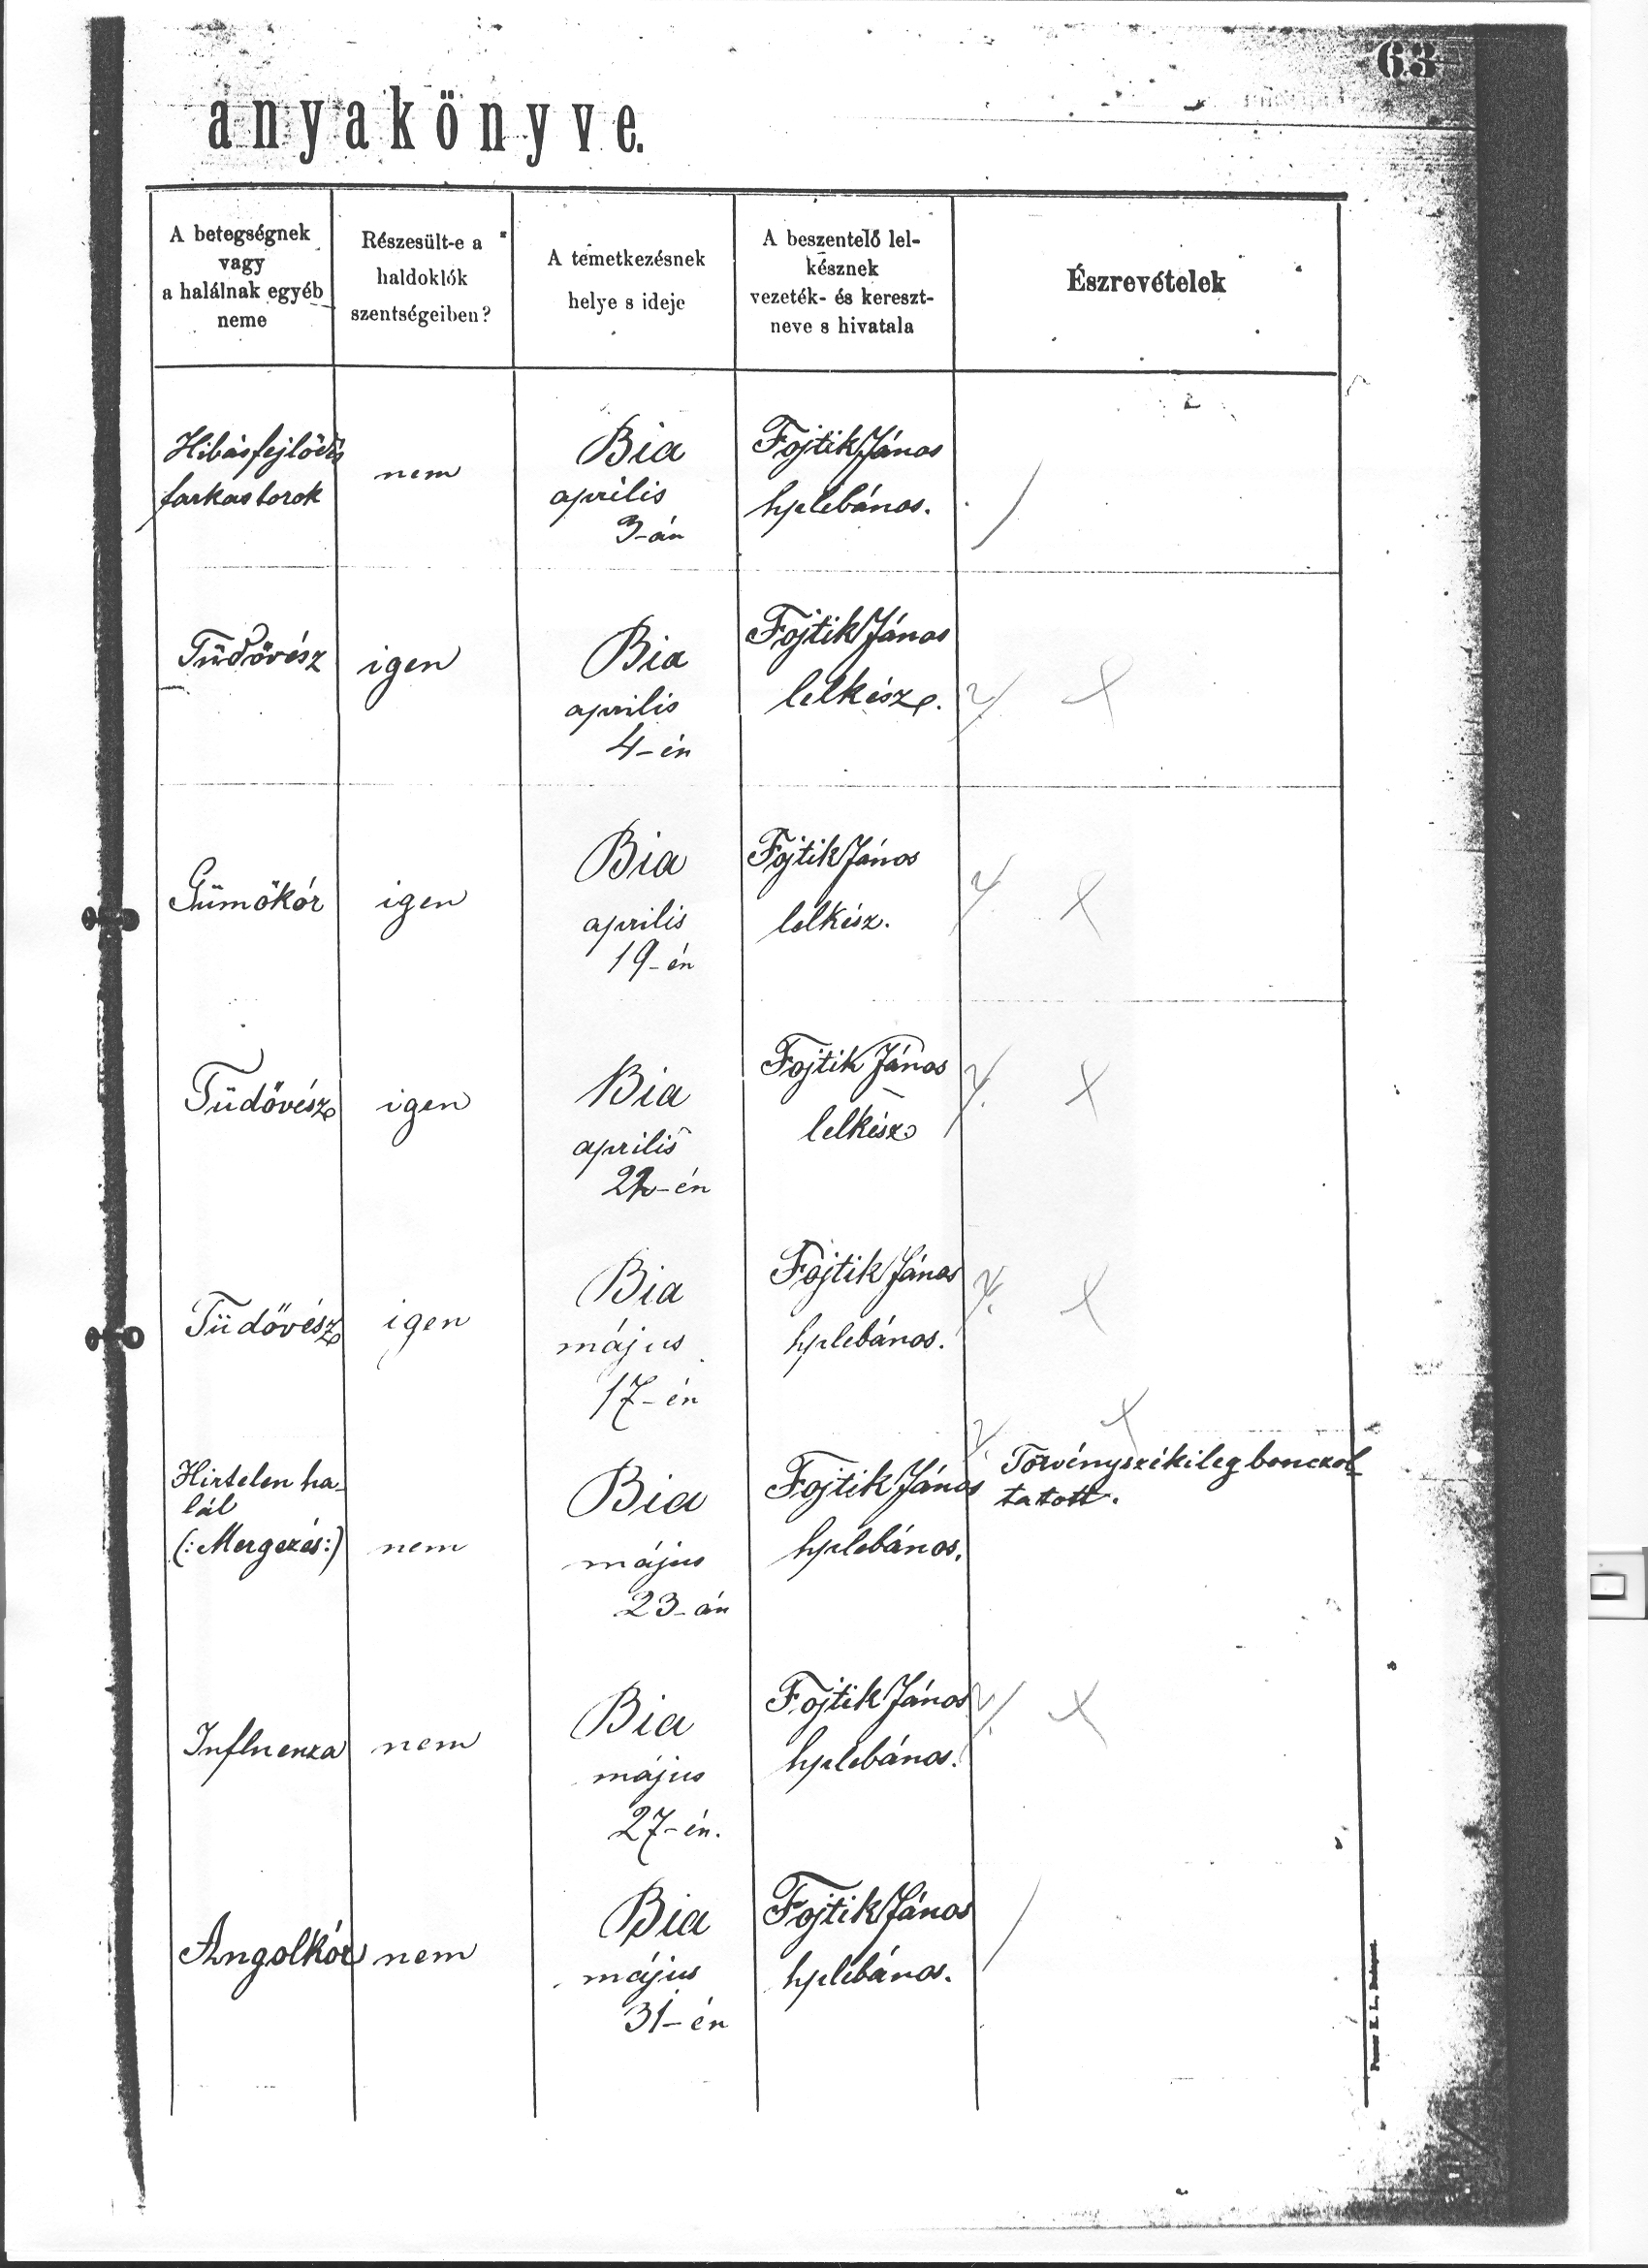 63
anyakönyve.
A betegségnek
vagy
a halálnak egyéb
neme
Részesült-e a
haldoklók
szentségeiben?
A temetkezésnek
helye s ideje
A beszentelő lel-
késznek
vezeték- és kereszt-
neve s hivatala
Észrevételek
Hibásfejlődés
farkastorok
nem
Bia
április
3-án
Fojtik János
hplebános.
Tüdővész
igen
Bia
április
4-én
Fojtik János
lelkész.
Gümőkór
igen
Bia
április
19-én
Fojtik János
lelkész.
Tüdővész
igen
Bia
április
22-én
Fojtik János
lelkész
Tüdővész
igen
Bia
május
17-én
Fojtik János
hplebános.
Hirtelen ha-
lál
(:Mergezés:)
nem
Bia
május
23-án
Fojtik János
hplebános.
Törvényszékileg bonczol-
tatott.
Influenza
nem
Bia
május
27-én.
Fojtik János
hplebános.
Angolkór
nem
Bia
május
31-én
Fojtik János
hplebános.
Posner K. L., Budapest.